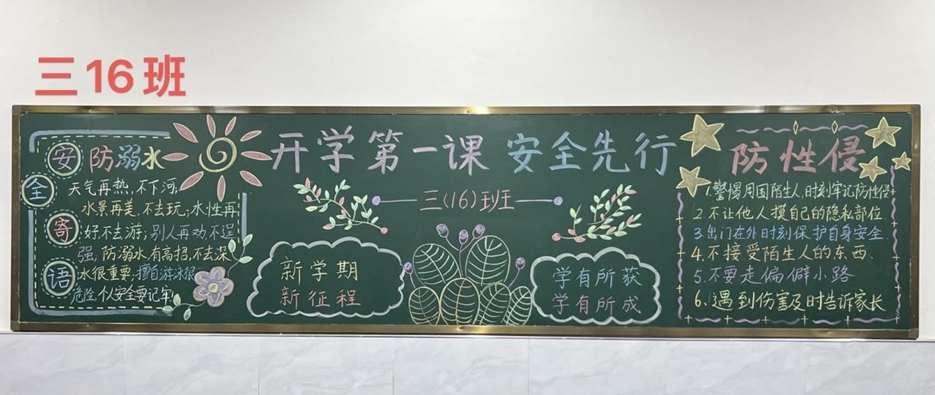 三16班
安全寄语
防溺水
天气再热,不下河,
水景再美,不去玩;水性再
好不去游;别人再劝不逞
强,防溺水有高招,不去深
水很重要,擅自游泳很
危险个人安全要记牢
开学第一课 安全先行
三(16)班
新学期
新征程
学有所获
学有所成
防性侵
1.警惕周围陌生人,时刻牢记防性侵
2.不让他人摸自己的隐私部位
3.出门在外时刻保护自身安全
4.不接受陌生人的东西.
5.不要走偏僻小路
6.遇到伤害及时告诉家长